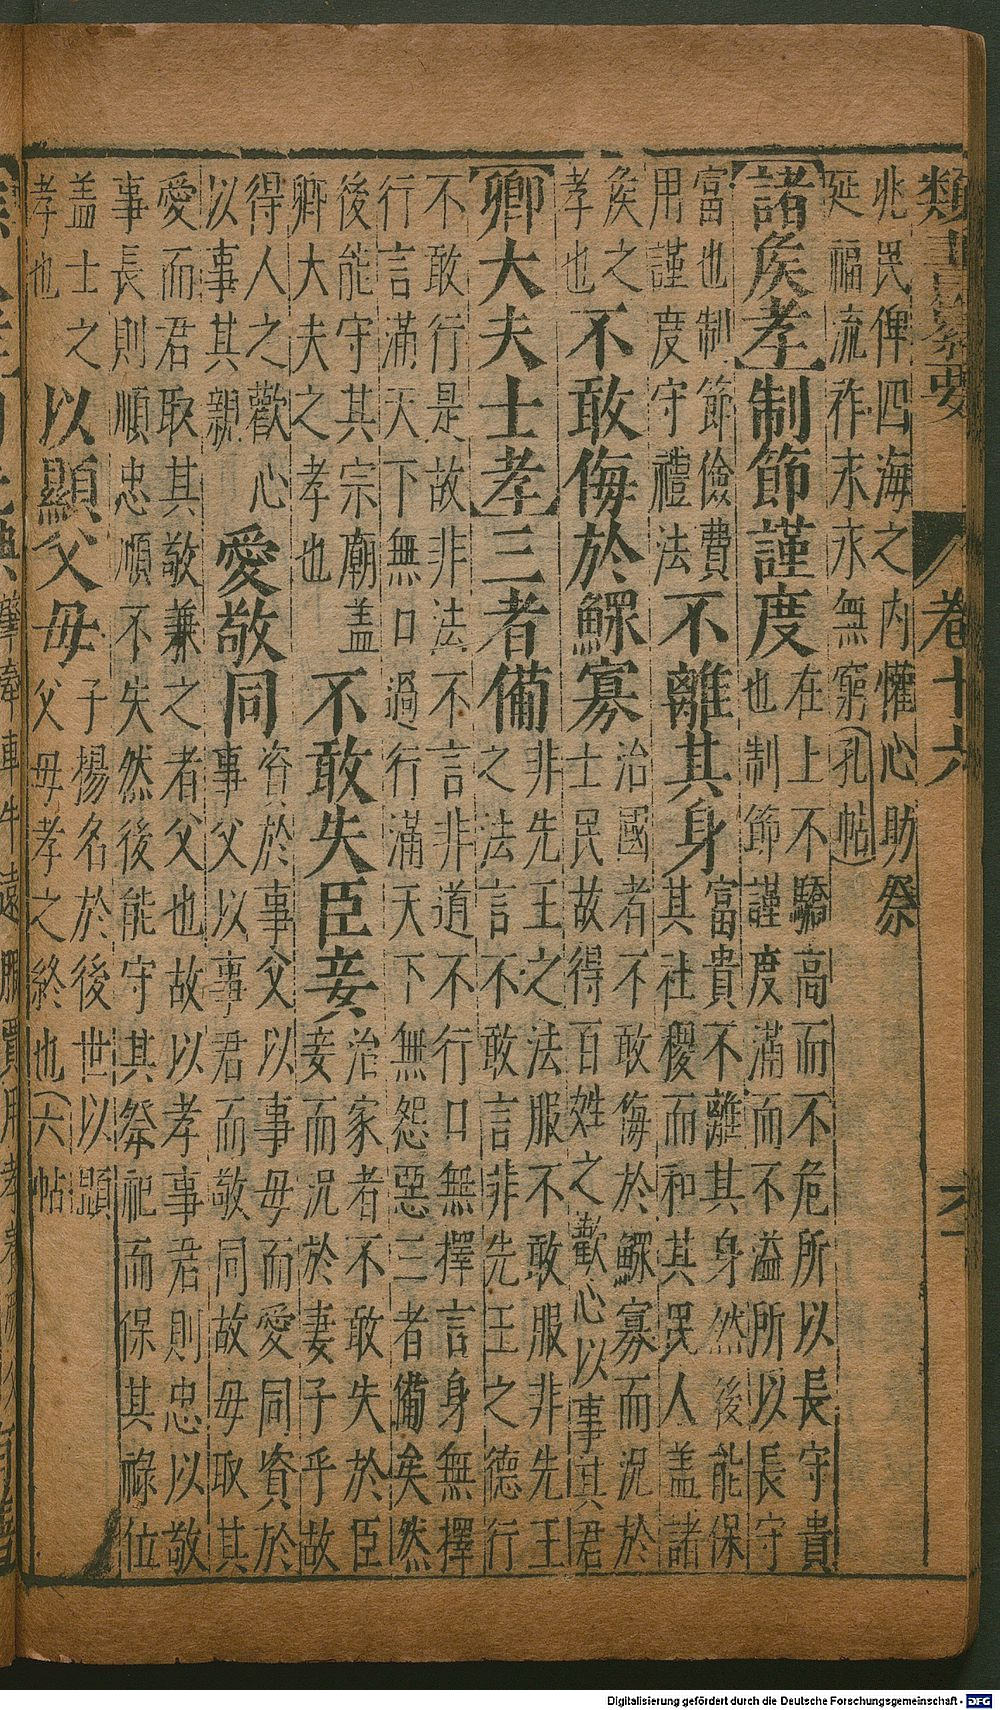 類書纂要 卷十六
兆民俾四海之內懽心助祭
延福流祚來永無窮(孔帖)
【諸侯孝】制節謹度
在上不驕高而不危所以長守貴
也制節謹度滿而不溢所以長守
富也制節儉費
用謹度守禮法
不離其身
富貴不離其身然後能保
其社稷而和其民人盖諸
侯之
孝也
不敢侮於鰥寡
治國者不敢侮於鰥寡而況於
士民故得百姓之歡心以事其君
【卿大夫士孝】三者備
非先王之法服不敢服非先王
之法言不敢言非先王之德行
不敢行是故非法不言非道不行口無擇言身無擇
行言滿天下無口過行滿天下無怨惡三者備矣然
後能守其宗廟盖
卿大夫之孝也
不敢失臣妾
治家者不敢失於臣
妾而況於妻子乎故
得人之歡心
以事其親
愛敬同
資於事父以事母而愛同資於
事父以事君而敬同故母取其
愛而君取其敬兼之者父也故以孝事君則忠以敬
事長則順忠順不失然後能守其祭祀而保其祿位
盖士之
孝也
以顯父母
子揚名於後世以顯
父母孝之終也(六帖)
Digitalisierung gefördert durch die Deutsche Forschungsgemeinschaft - DFG